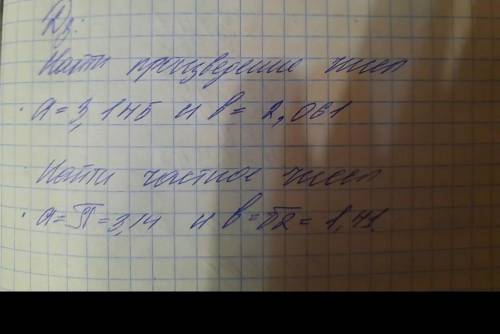 Дз:
Найти произведение чисел
a = 3,145 и b = 2,061
Найти частное чисел
a = π = 3,14 и b = √2 = 1,41.